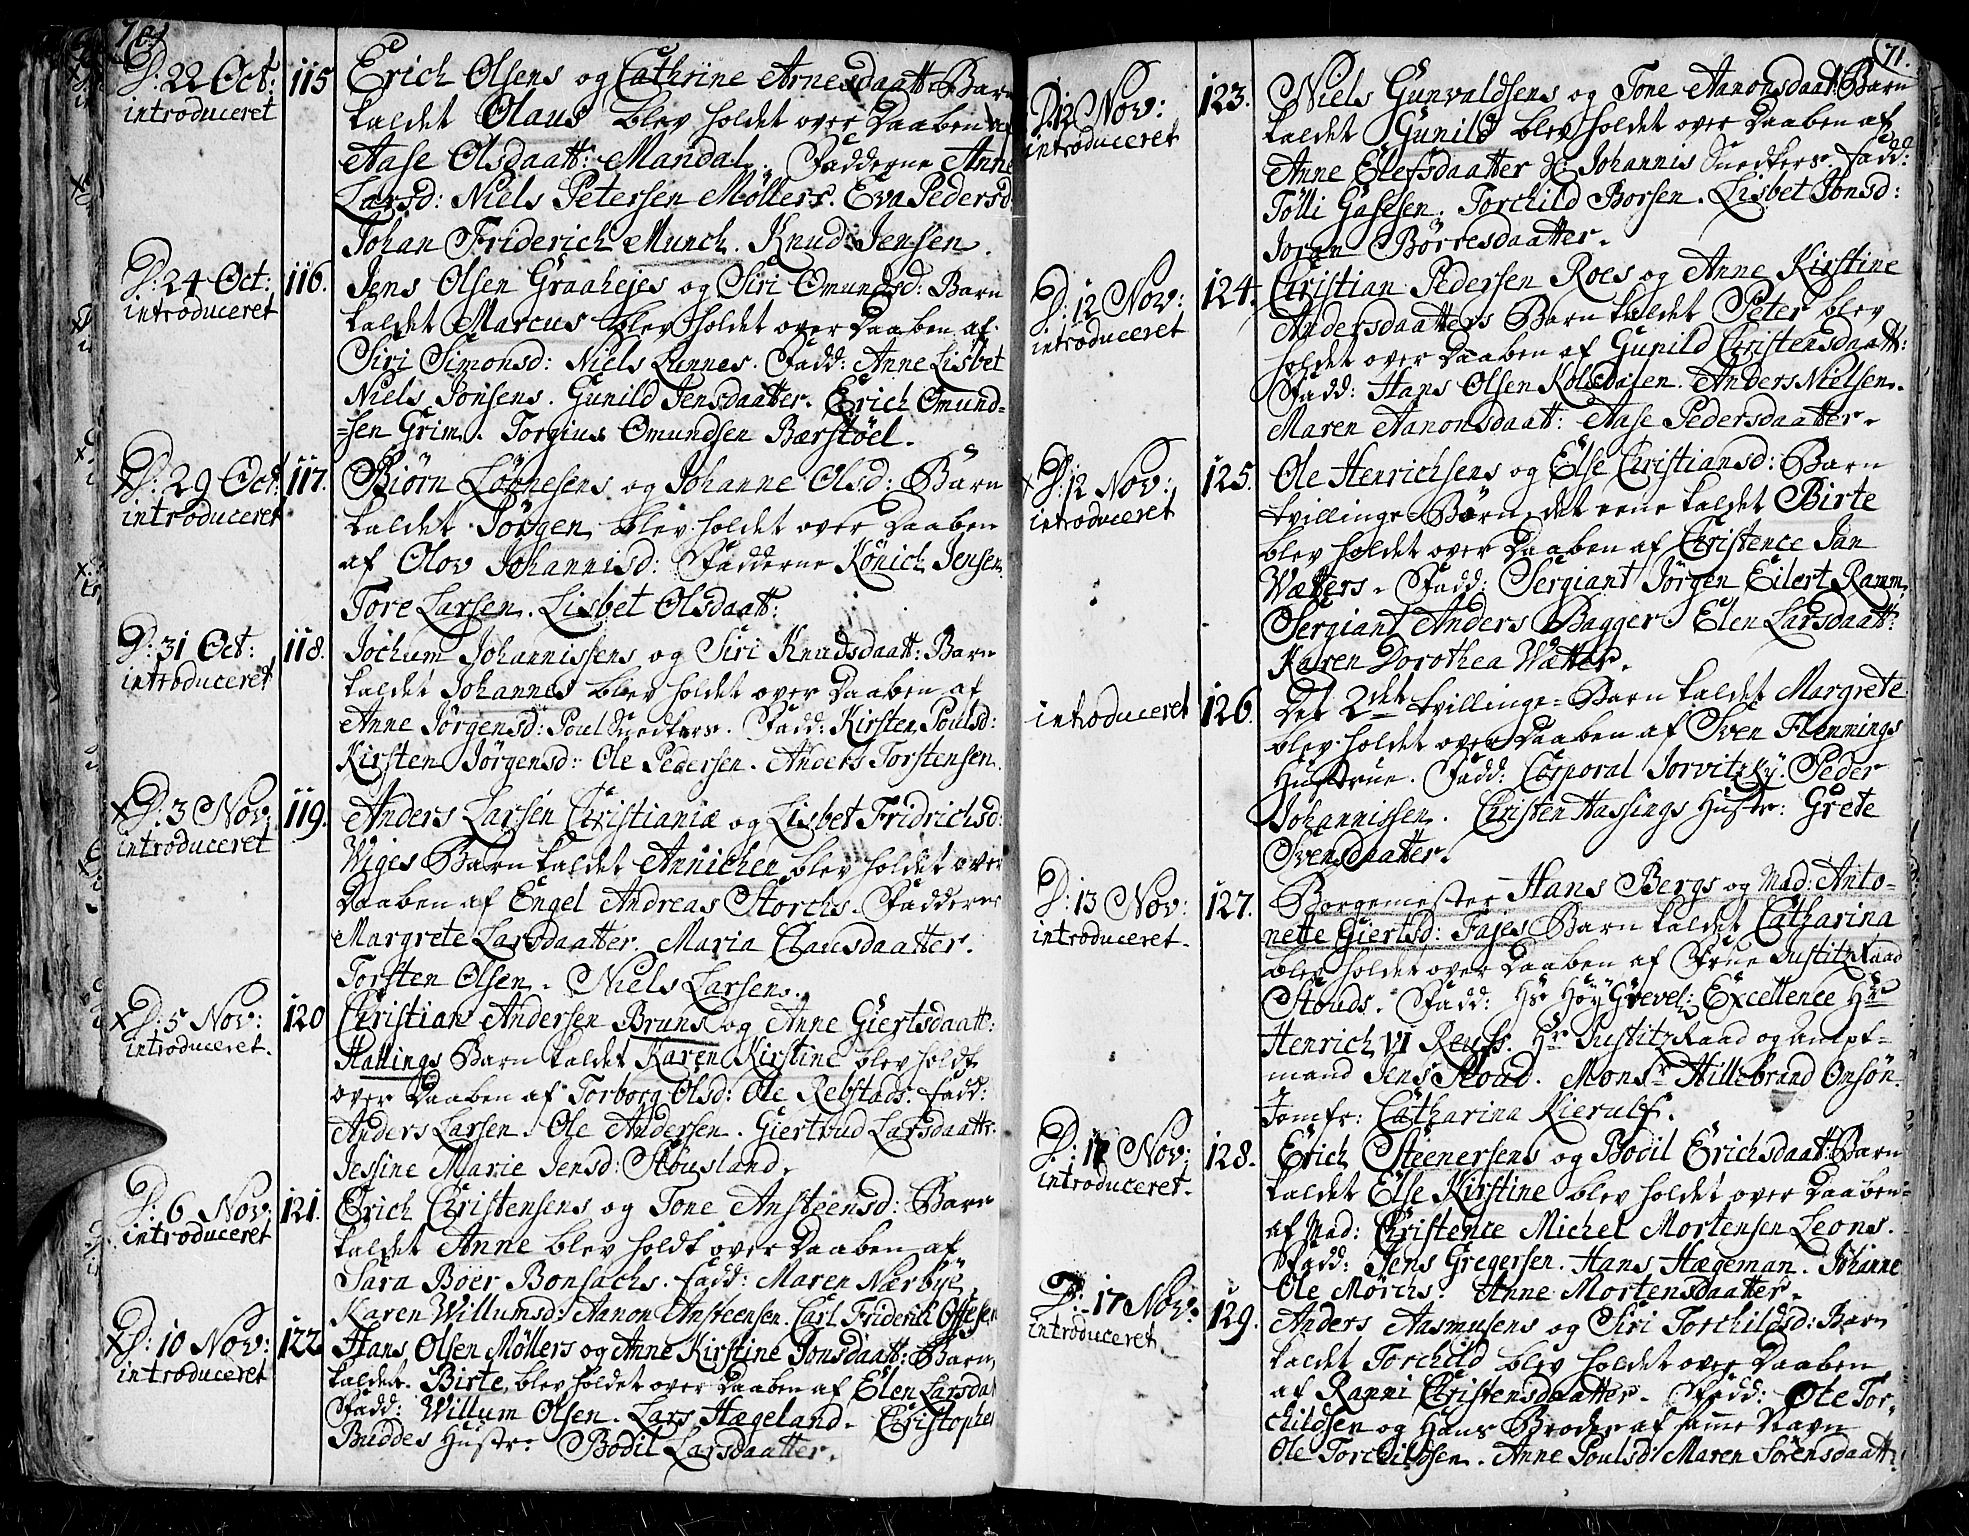 70
D: 22 Oct: 115 Erich Olsens og Cathrine Arnesdaatt: Barn
introduceret kaldet Olaus blev holdet over Daaben af
Aase Olsdaatt: Mandal. Fadderne Anne
Larsd: Niels Petersen Möllers. Eva Pedersd:
Johan Friderich Munch. Knud Jensen.
D: 24 Oct: 116. Jens Olsen Graahejes og Siri Omundsd: Barn
introduceret kaldet Marcus blev holdet over Daaben af
Siri Simonsd: Niels Lunnes. Fadd: Anne Lisbet
Niels Jonsens. Gunild Jensdaatter. Erich Omund=
=sen Grim. Torgius Omundsen Bærstöel.
x D: 29 Oct: 117. Biörn Lönnesens og Johanne Olsd: Barn
introduceret kaldet Jörgen blev holdet over Daaben
af Olov Johannisd: Fadderne Könich Jensen.
Tore Larsen. Lisbet Olsdaatt:
D: 31 Oct: 118. Jochum Johannissens og Siri Knudsdaatt: Barn
introduceret kaldet Johannes blev holdet over Daaben af
Anne Jörgensd: Poul Snedkers. Fadd: Kirsten Poulsd:
Kirsten Jörgensd: Ole Pedersen. Anders Torstensen.
x D: 3 Nov: 119. Anders Larsen Christianiæ og Lisbet Fridrichsd:
introduceret Wiges Barn kaldet Annichen blev holdet over
Daaben af Engel Andreas Storchs. Fadderne
Margrete Larsdaatter. Maria Clausdaatter.
Torsten Olsen. Niels Larsens.
x D: 5 Nov: 120 Christian Andersen Bruns og Anne Giertsdaatt:
introduceret. Hallings Barn kaldet Karen Kirstine blev holdt
over Daaben af Torborg Olsd: Ole Rebstads. fadd:
Anders Larsen. Ole Andersen. Giertrud Larsdaatt:
Jessine Marie Jensd: Stousland.
D: 6 Nov: 121. Erich Christensens og Tone Ansteensd: Barn
introduceret kaldet Anne blev holdt over Daaben af
Sara Böer Bonsachs. fadd: Maren Nærbye
Karen Willumsd: Aanon Ansteensen. Carl Friderich Offesen
x D: 10 Nov: 122 Hans Olsen Möllers og Anne Kirstine Jonsdaatt: Barn
introduceret kaldet Birte, blev holdet over Daaben af Elen Larsdat
Fadd: Willum Olsen. Lars Hægeland. Christopher
Buddes Hustr: Bodil Larsdaatter.
71.
D: 12 Nov: 123. Niels Gunvaldsens og Tone Aanonsdaat: Barn
introduceret kaldet Gunild blev holdet over Daaben af
Anne Elefsdaatter Johannis Snedkers. fadd:
Tölli Gasesen. Torchild Borsen. Lisbet Jonsd:
Joran Börresdaatter.
D: 12 Nov: 124. Christian Pedersen Roes og Anne Kirstine
introduceret Andersdaatters Barn kaldet Peter blev
holdet over Daaben af Gunild Christensdaatt:
Fadd: Hans Olsen Kolsdalen. Anders Nielsen.
Maren Aanonsdaatt: Aase Pedersdaatter.
x D: 12 Nov: 125. Ole Henrichsens og Else Christiansd: Barn
introduceret tvillinge Börn, det eene kaldet Birte
blev holdet over Daaben af Christence Jan
Wætters. Fadd: Sergiant Jörgen Eilert Ramm.
Sergiant Anders Bagger. Elen Larsdaatt:
Karen Dorothea Wætters.
introduceret 126. Det 2det tvillinge=Barn kaldet Margrete
blev holdet over Daaben af Sven Flemmings
Hustrue. Fadd: Corporal Jorvitzky. Peder
Johannissen. Christen Hassings Hustr: Grete
Svensdaatter.
D: 13 Nov: 127. Borgemester Hans Bergs og Mad: Anto=
introduceret. nette Giertsd: Fajes Barn kaldet Catharina
blev holdet over Daaben af Frue JustitzRaad
Stouds. Fadd: Hs Höy Grevel: Excellence Hr
Henrich VI Reuss. Hr JustitzRaad og Ampt=
mand Jens Stoud. Monsr Hillebrand Onsön.
Jomfr: Catharina Kierulf.
D: 17 Nov: 128. Erich Steenersens og Bodil Erichsdaat: Barn
introduceret. kaldet Else Kirstine blev holdet over Daaben
af Mad: Christence Michel Mortensen Leons.
Fadd: Jens Gregersen. Hans Hægeman. Johanne
Ole Mörchs. Anne Mortensdaatter.
D: 17 Nov: 129. Anders Aasmusens og Siri Torchildsd: Barn
introduceret. kaldet Torchild blev holdet over Daaben
af Ranni Christensdaatter. Fadd: Ole Tor=
childsen og Hans Broder af samme Navn
Ole Torchildsen. Anne Poulsd: Maren Sörensdaatt: